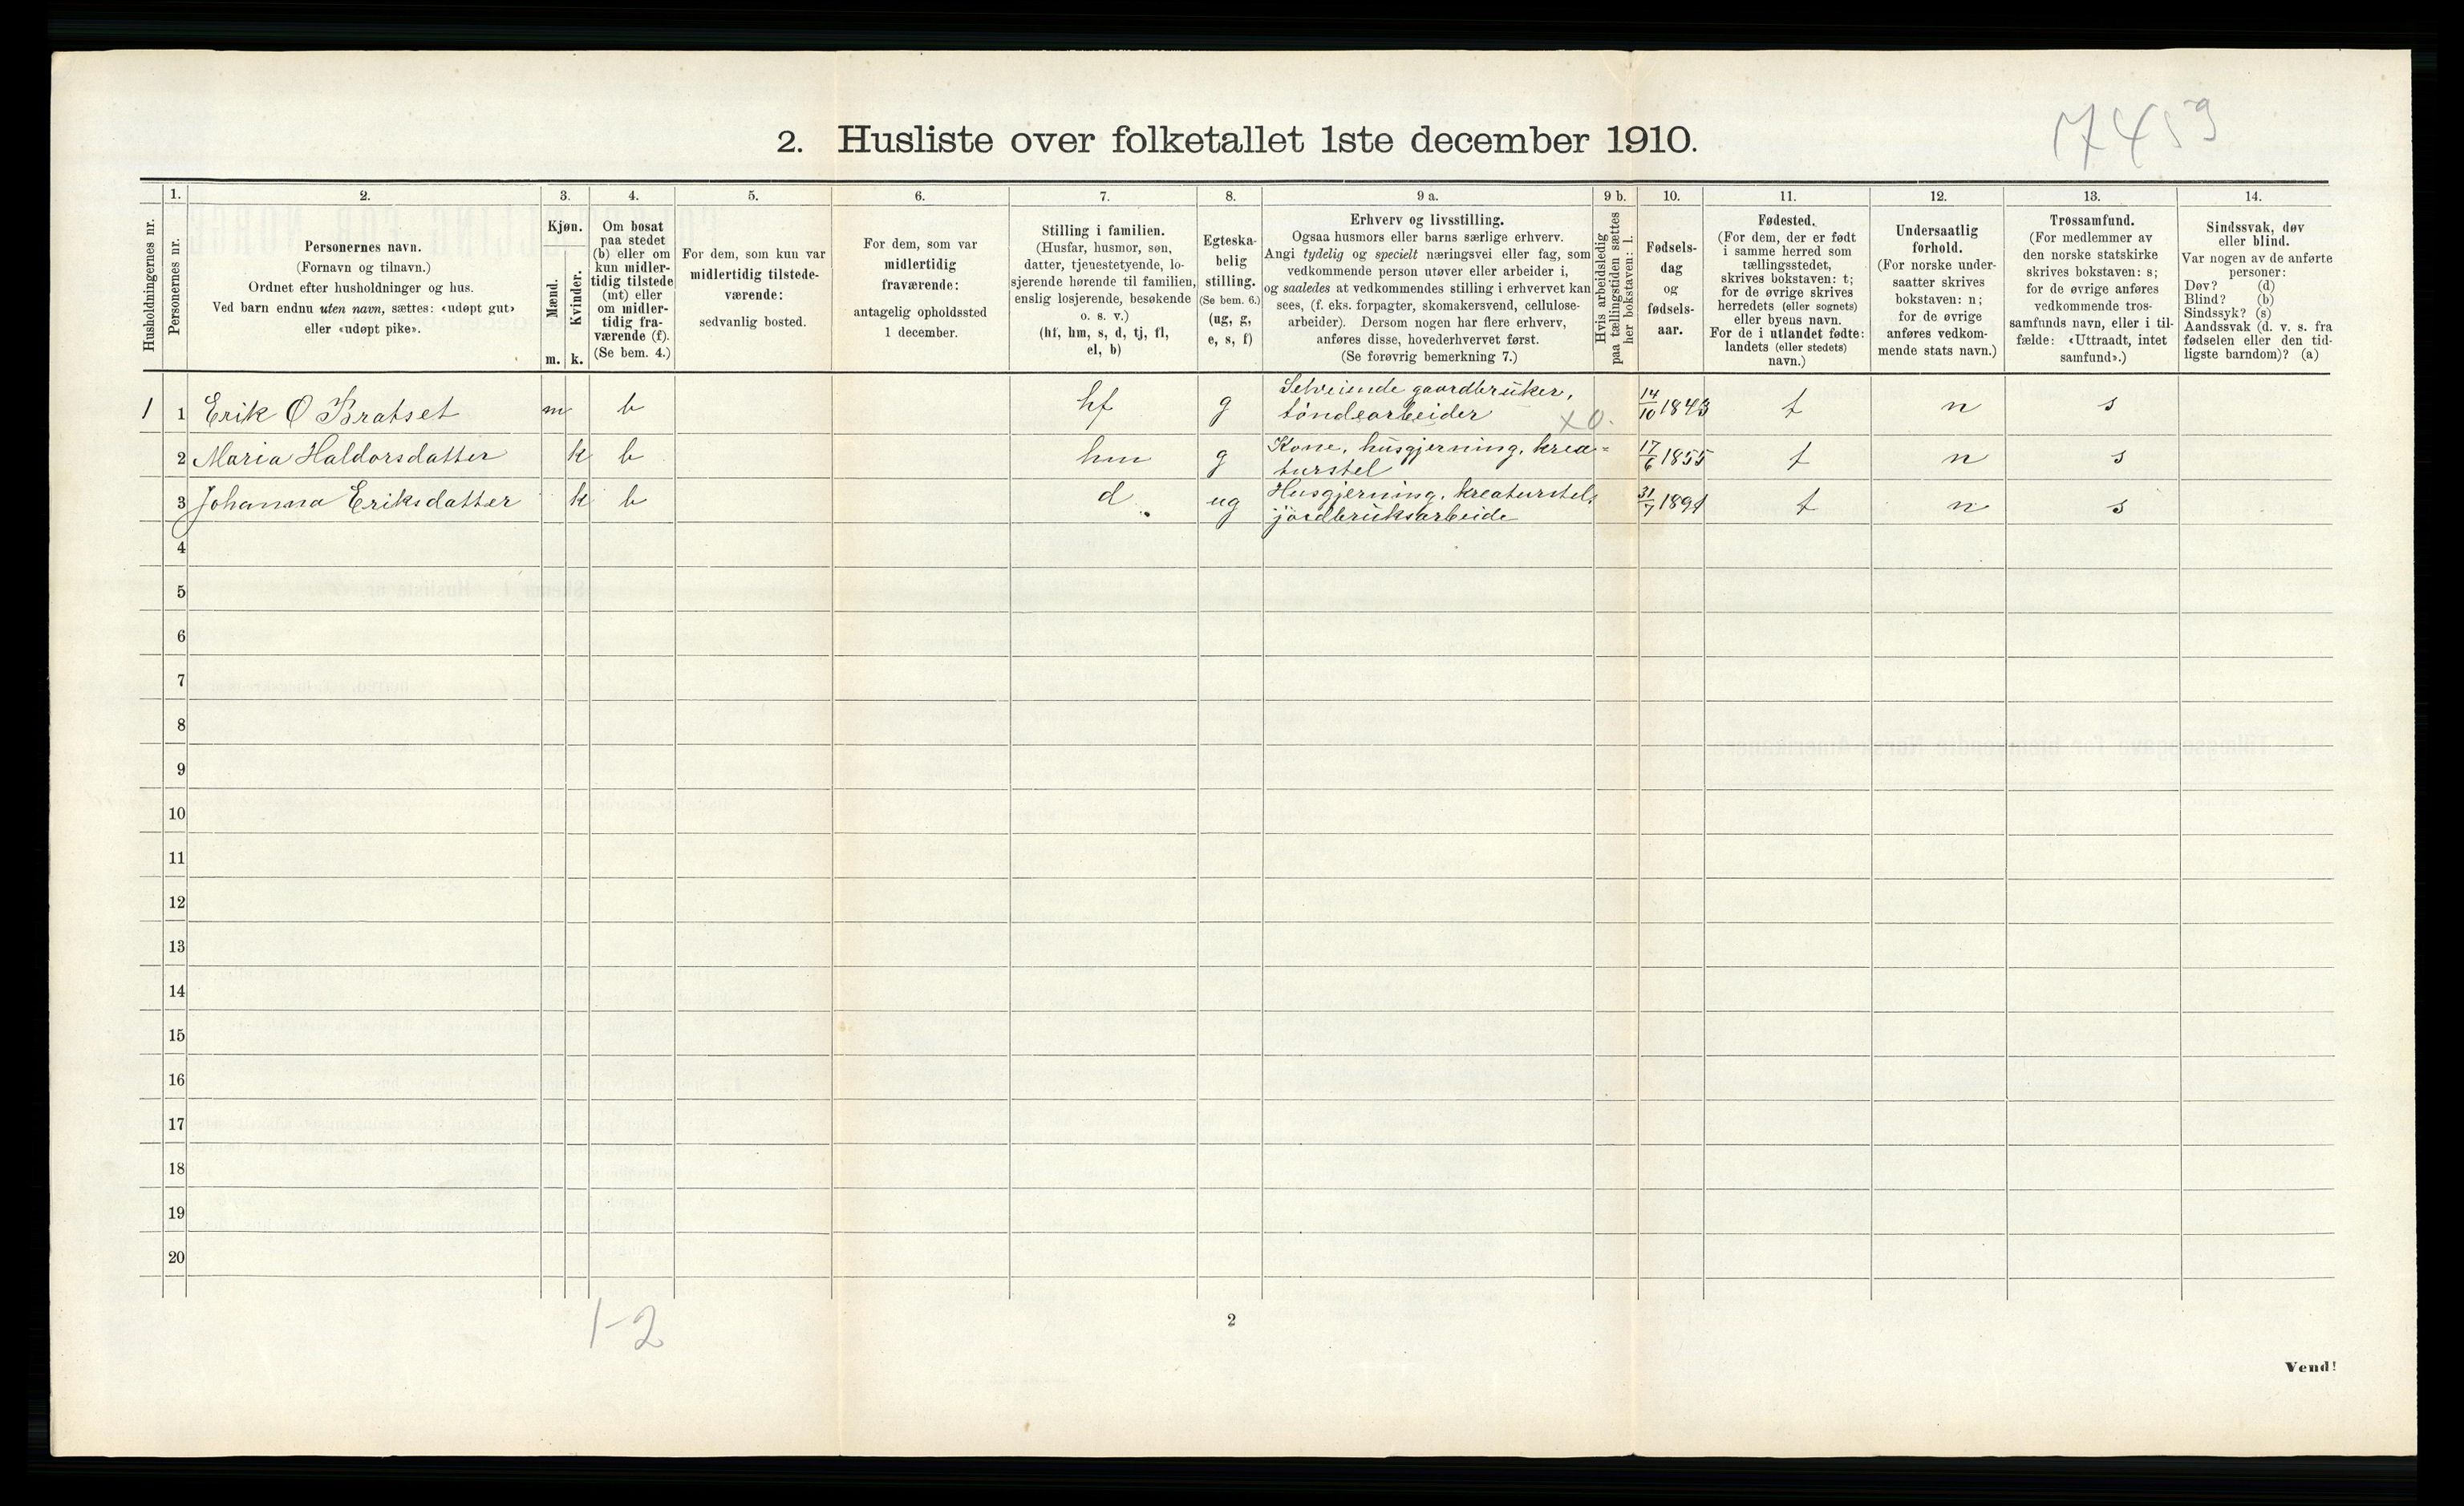 7453
2. Husliste over folketallet 1ste december 1910.
1. 2. 3. 4. 5. 6. 7. 8. 9 a. 9 b. 10. 11. 12. 13. 14.
Husholdningernes nr.
Personernes nr.
Personernes navn.
(Fornavn og tilnavn.)
Ordnet efter husholdninger og hus.
Ved barn endnu uten navn, sættes: «udøpt gut»
eller «udøpt pike».
Kjøn.
Mænd.
Kvinder.
m. k.
Om bosat
paa stedet
(b) eller om
kun midler-
tidig tilstede
(mt) eller
om midler-
tidig fra-
værende (f).
(Se bem. 4.)
For dem, som kun var
midlertidig tilstede-
værende:
sedvanlig bosted.
For dem, som var
midlertidig
fraværende:
antagelig opholdssted
1 december.
Stilling i familien.
(Husfar, husmor, søn,
datter, tjenestetyende, lo-
sjerende hørende til familien,
enslig losjerende, besøkende
o. s. v.)
(hf, hm, s, d, tj, fl,
el, b)
Egteska-
belig
stilling.
(Se bem. 6.)
(ug, g,
e, s, f)
Erhverv og livsstilling.
Ogsaa husmors eller barns særlige erhverv.
Angi tydelig og specielt næringsvei eller fag, som
vedkommende person utøver eller arbeider i,
og saaledes at vedkommendes stilling i erhvervet kan
sees, (f. eks. forpagter, skomakersvend, cellulose-
arbeider). Dersom nogen har flere erhverv,
anføres disse, hovederhvervet først.
(Se forøvrig bemerkning 7.)
Hvis arbeidsledig
paa tællingstiden sættes
her bokstaven: l.
Fødsels-
dag
og
fødsels-
aar.
Fødested.
(For dem, der er født
i samme herred som
tællingsstedet,
skrives bokstaven: t;
for de øvrige skrives
herredets (eller sognets)
eller byens navn.
For de i utlandet fødte:
landets (eller stedets)
navn.)
Undersaatlig
forhold.
(For norske under-
saatter skrives
bokstaven: n;
for de øvrige
anføres vedkom-
mende stats navn.)
Trossamfund.
(For medlemmer av
den norske statskirke
skrives bokstaven: s;
for de øvrige anføres
vedkommende tros-
samfunds navn, eller i til-
fælde: «Uttraadt, intet
samfund».)
Sindssvak, døv
eller blind.
Var nogen av de anførte
personer:
Døv? (d)
Blind? (b)
Sindssyk? (s)
Aandssvak (d. v. s. fra
fødselen eller den tid-
ligste barndom)? (a)
1 1 Erik O Bratset m b hf g Selveiende gaardbruker, tøndearbeider x0. 14/10 1843 t n s
2 Maria Haldorsdatter k b hm g Kone, husgjerning, krea-turstel 17/6 1855 t n s
3 Johanna Eriksdatter k b d. ug Husgjerning, kreaturstel, jordbruksarbeide 31/7 1891 t n s
4
5
6
7
8
9
10
11
12
13
14
15
16
17
18
19
20
1-2
2
Vend!